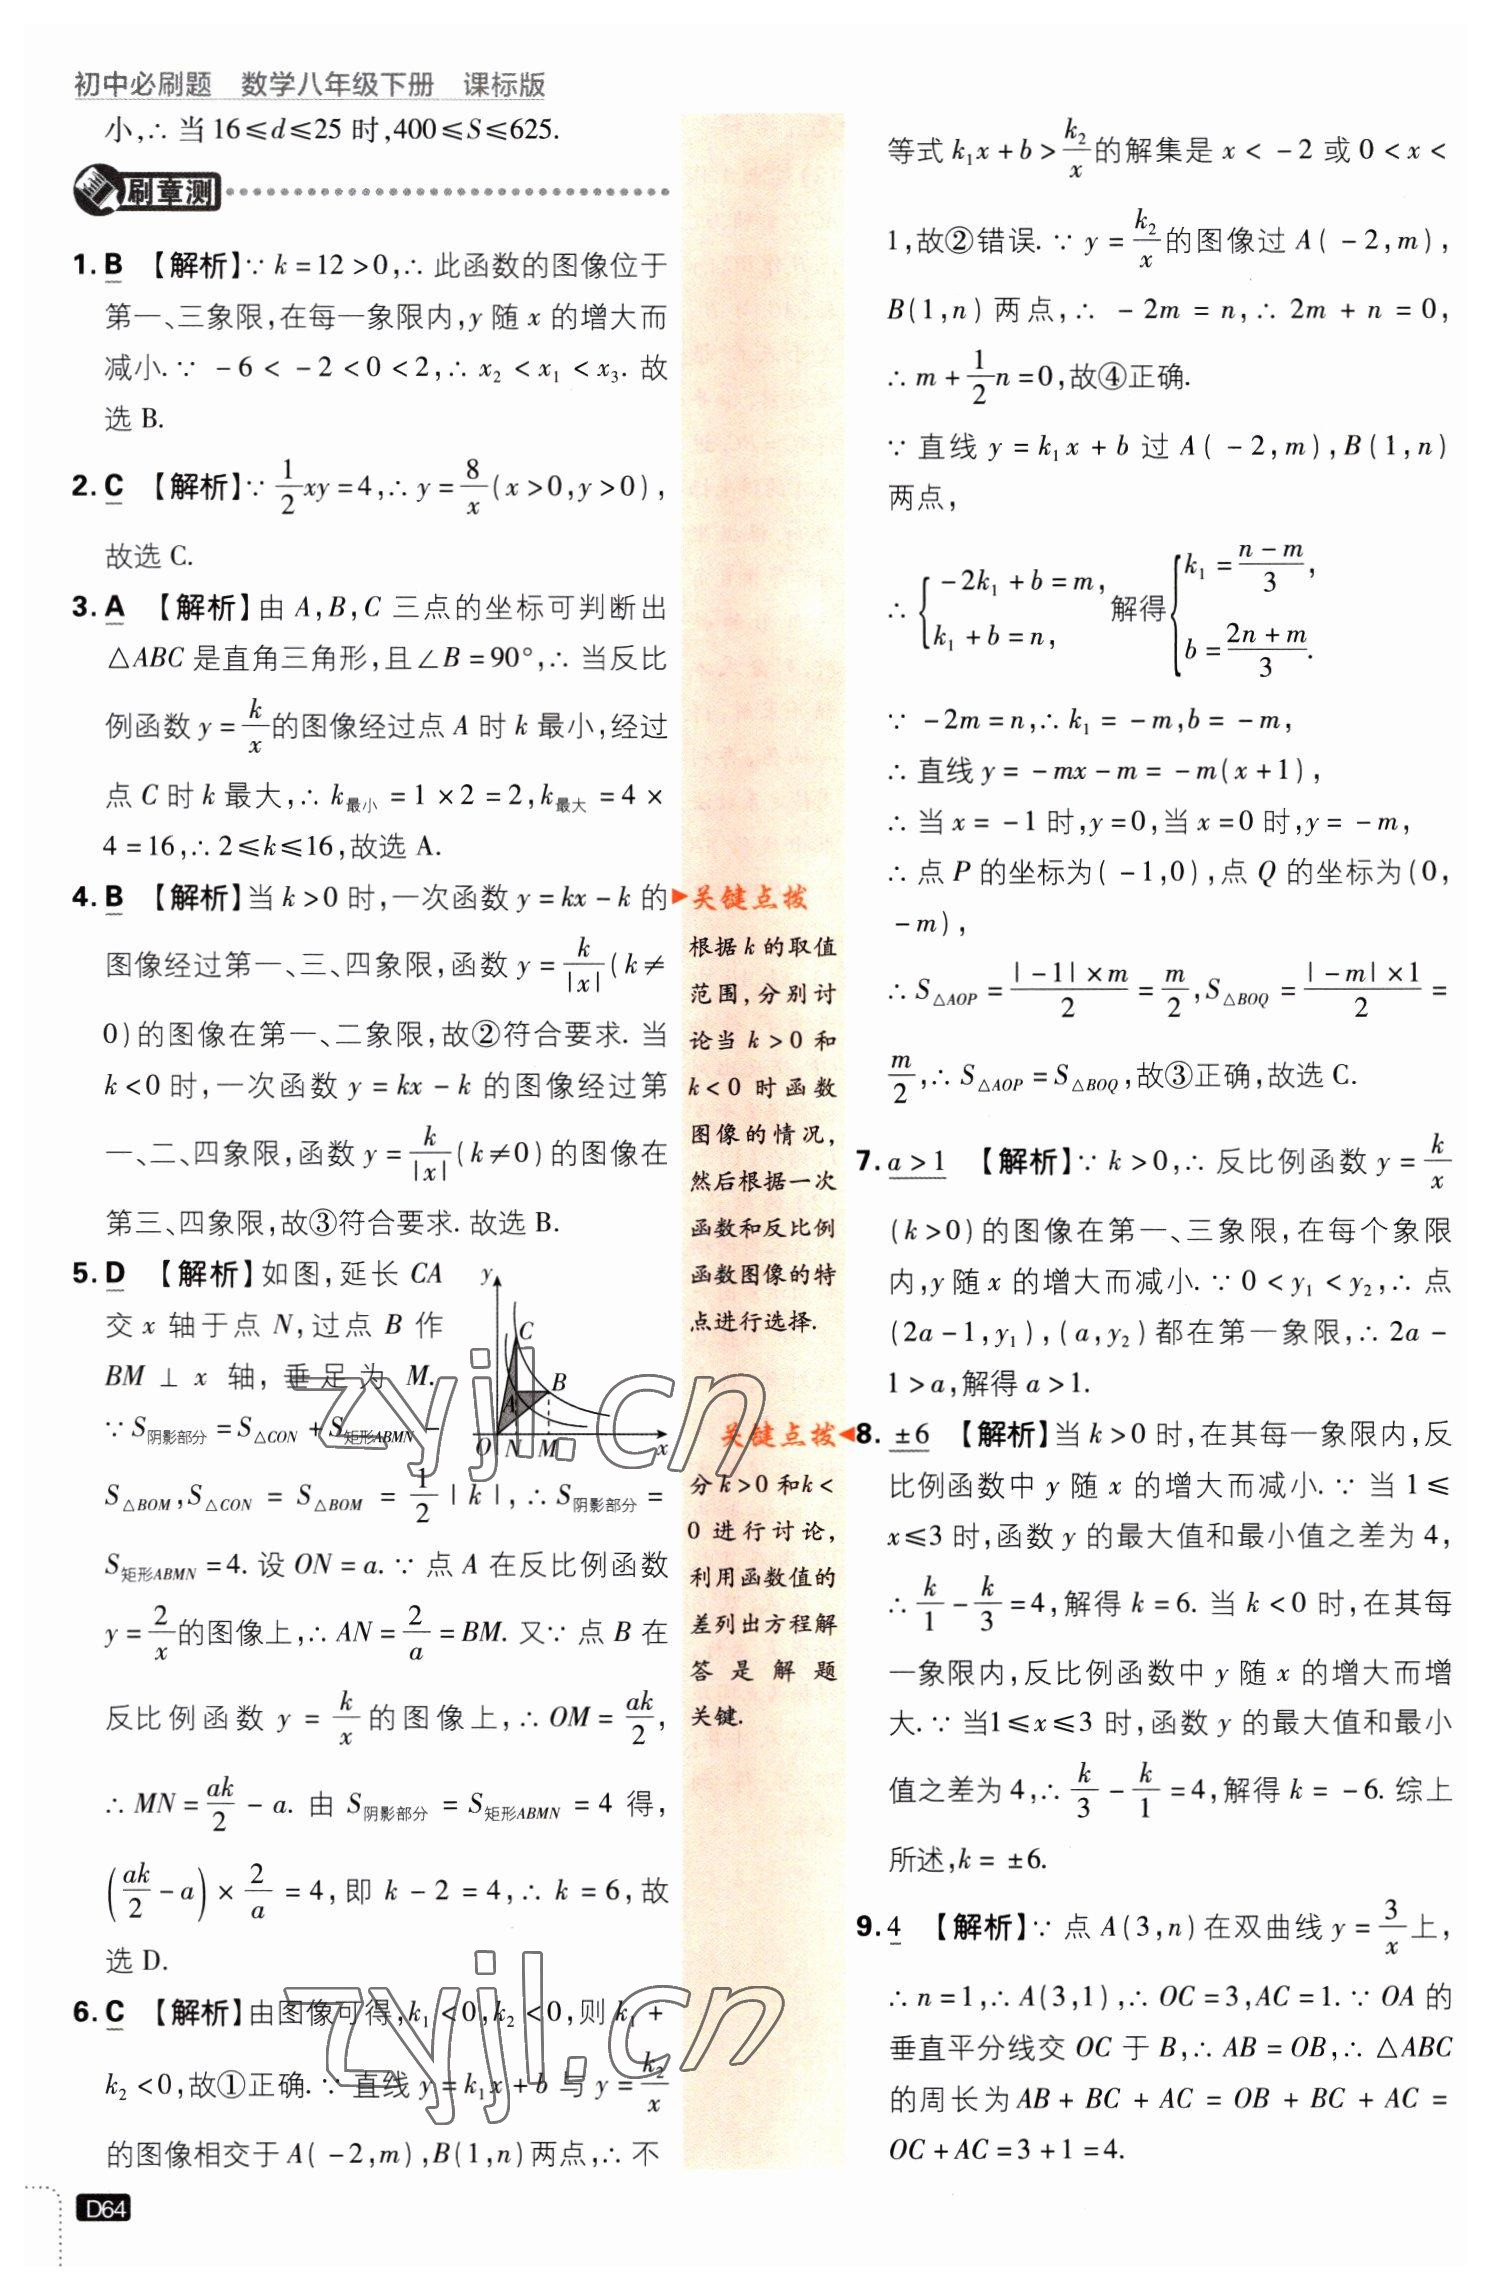 初中必刷题 数学八年级下册 课标版
小,∴当16≤d≤25时,400≤S≤625.
刷章测
1. B 【解析】∵k=12>0,∴此函数的图像位于
第一、三象限,在每一象限内,y随x的增大而
减小.∵-6<-2<0<2,∴x₂<x₁<x₃.故
选B.
2. C 【解析】∵1/2xy=4,∴y=8/x(x>0,y>0),
故选C.
3. A 【解析】由A,B,C三点的坐标可判断出
△ABC是直角三角形,且∠B=90°,∴当反比
例函数y=k/x的图像经过点A时k最小,经过
点C时k最大,∴k最小=1×2=2,k最大=4×
4=16,∴2≤k≤16,故选A.
4. B 【解析】当k>0时,一次函数y=kx-k的
图像经过第一、三、四象限,函数y=k/|x|(k≠
0)的图像在第一、二象限,故②符合要求.当
k<0时,一次函数y=kx-k的图像经过第
一、二、四象限,函数y=k/|x|(k≠0)的图像在
第三、四象限,故③符合要求.故选B.
5. D 【解析】如图,延长CA
交x轴于点N,过点B作
BM⊥x轴,垂足为M.
∵S阴影部分=S△CON+S矩形ABMN-
S△BOM,S△CON=S△BOM=1/2|k|,∴S阴影部分=
S矩形ABMN=4.设ON=a.∵点A在反比例函数
y=2/x的图像上,∴AN=2/a=BM.又∵点B在
反比例函数y=k/x的图像上,∴OM=ak/2,
∴MN=ak/2-a.由S阴影部分=S矩形ABMN=4得,
(ak/2-a)×2/a=4,即k-2=4,∴k=6,故
选D.
y
C
A
B
O N M x
6. C 【解析】由图像可得,k₁<0,k₂<0,则k₁+
k₂<0,故①正确.∵直线y=k₁x+b与y=k₂/x
的图像相交于A(-2,m),B(1,n)两点,∴不
D64
关键点拨
根据k的取值
范围,分别讨
论当k>0和
k<0时函数
图像的情况,
然后根据一次
函数和反比例
函数图像的特
点进行选择.
关键点拨
分k>0和k<
0进行讨论,
利用函数值的
差列出方程解
答是解题
关键.
等式k₁x+b>k₂/x的解集是x<-2或0<x<
1,故②错误.∵y=k₂/x的图像过A(-2,m),
B(1,n)两点,∴-2m=n,∴2m+n=0,
∴m+1/2n=0,故④正确.
∵直线y=k₁x+b过A(-2,m),B(1,n)
两点,
∴{-2k₁+b=m, k₁+b=n, 解得{k₁=(n-m)/3, b=(2n+m)/3.
∵-2m=n,∴k₁=-m,b=-m,
∴直线y=-mx-m=-m(x+1),
∴当x=-1时,y=0,当x=0时,y=-m,
∴点P的坐标为(-1,0),点Q的坐标为(0,
-m),
∴S△AOP=|-1|×m/2=m/2,S△BOQ=|-m|×1/2=
m/2,∴S△AOP=S△BOQ,故③正确,故选C.
7. a>1 【解析】∵k>0,∴反比例函数y=k/x
(k>0)的图像在第一、三象限,在每个象限
内,y随x的增大而减小.∵0<y₁<y₂,∴点
(2a-1,y₁),(a,y₂)都在第一象限,∴2a-
1>a,解得a>1.
8. ±6 【解析】当k>0时,在其每一象限内,反
比例函数中y随x的增大而减小.∵当1≤
x≤3时,函数y的最大值和最小值之差为4,
∴k/1-k/3=4,解得k=6.当k<0时,在其每
一象限内,反比例函数中y随x的增大而增
大.∵当1≤x≤3时,函数y的最大值和最小
值之差为4,∴k/3-k/1=4,解得k=-6.综上
所述,k=±6.
9. 4 【解析】∵点A(3,n)在双曲线y=3/x上,
∴n=1,∴A(3,1),∴OC=3,AC=1.∵OA的
垂直平分线交OC于B,∴AB=OB,∴△ABC
的周长为AB+BC+AC=OB+BC+AC=
OC+AC=3+1=4.
zyjl.cn
zyjl.cn